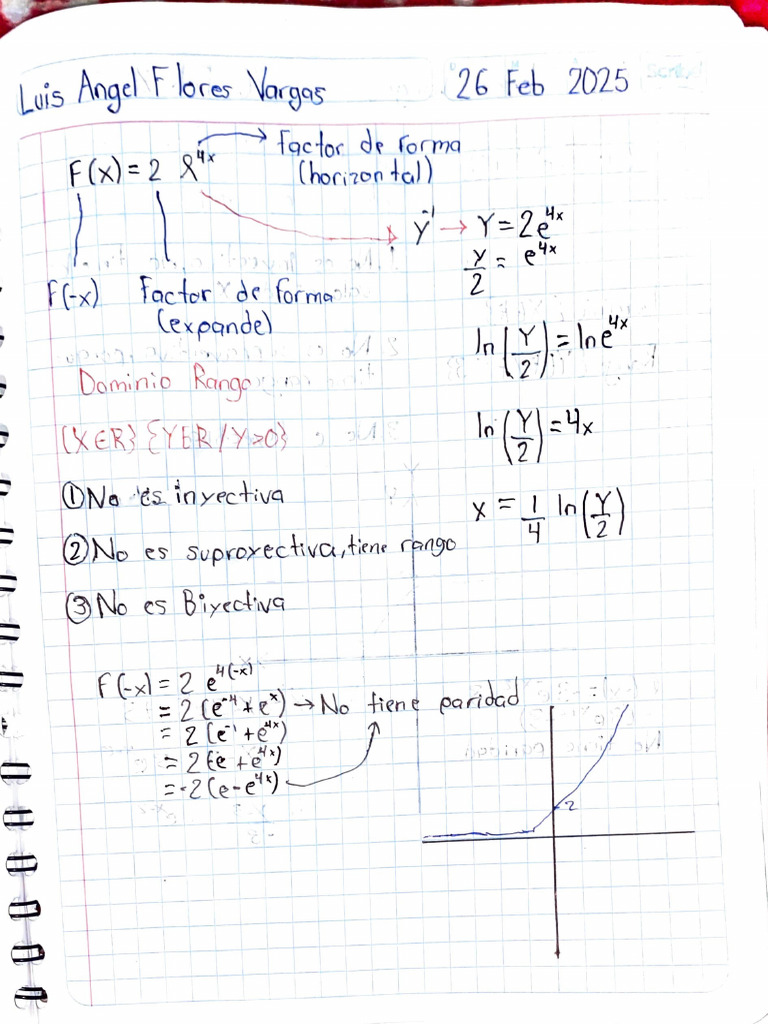 Luis Angel Flores Vargas
26 Feb 2025
Factor de forma
(horizontal)
F(x) = 2 e^4x
y^-1 → Y = 2e^4x
Y/2 = e^4x
F(-x) Factor de forma
(expande)
ln(Y/2) = ln e^4x
Dominio Rango
{X∈R} {Y∈R / Y>0}
ln(Y/2) = 4x
① No es inyectiva
x = 1/4 ln(Y/2)
② No es suproyectiva, tiene rango
③ No es Biyectiva
F(-x) = 2 e^4(-x)
= 2(e^-4 + e^x) → No tiene paridad
= 2(e^-1 + e^4x)
= 2(e + e^4x)
= -2(e - e^4x)
2